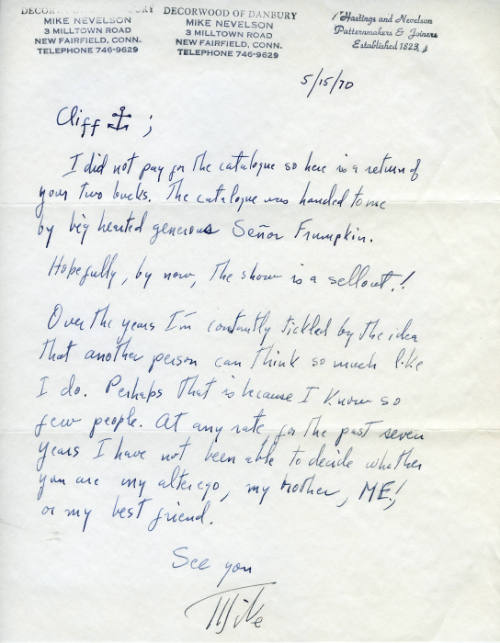 DECORWOOD OF DANBURY
MIKE NEVELSON
3 MILLTOWN ROAD
NEW FAIRFIELD, CONN.
TELEPHONE 746-9629
DECORWOOD OF DANBURY
MIKE NEVELSON
3 MILLTOWN ROAD
NEW FAIRFIELD, CONN.
TELEPHONE 746-9629
Hastings and Nevelson
Patternmakers & Joiners
Established 1823
5/15/70
Cliff ⚓ ;
I did not pay for the catalogue so here is a return of
your two bucks. The catalogue was handed to me
by big hearted generous Señor Frumpkin.
Hopefully, by now, the show is a sellout!!
Over the years I'm constantly tickled by the idea
that another person can think so much like
I do. Perhaps that is because I know so
few people. At any rate for the past seven
years I have not been able to decide whether
you are my alter ego, my mother, ME!,
or my best friend.
See you
Mike